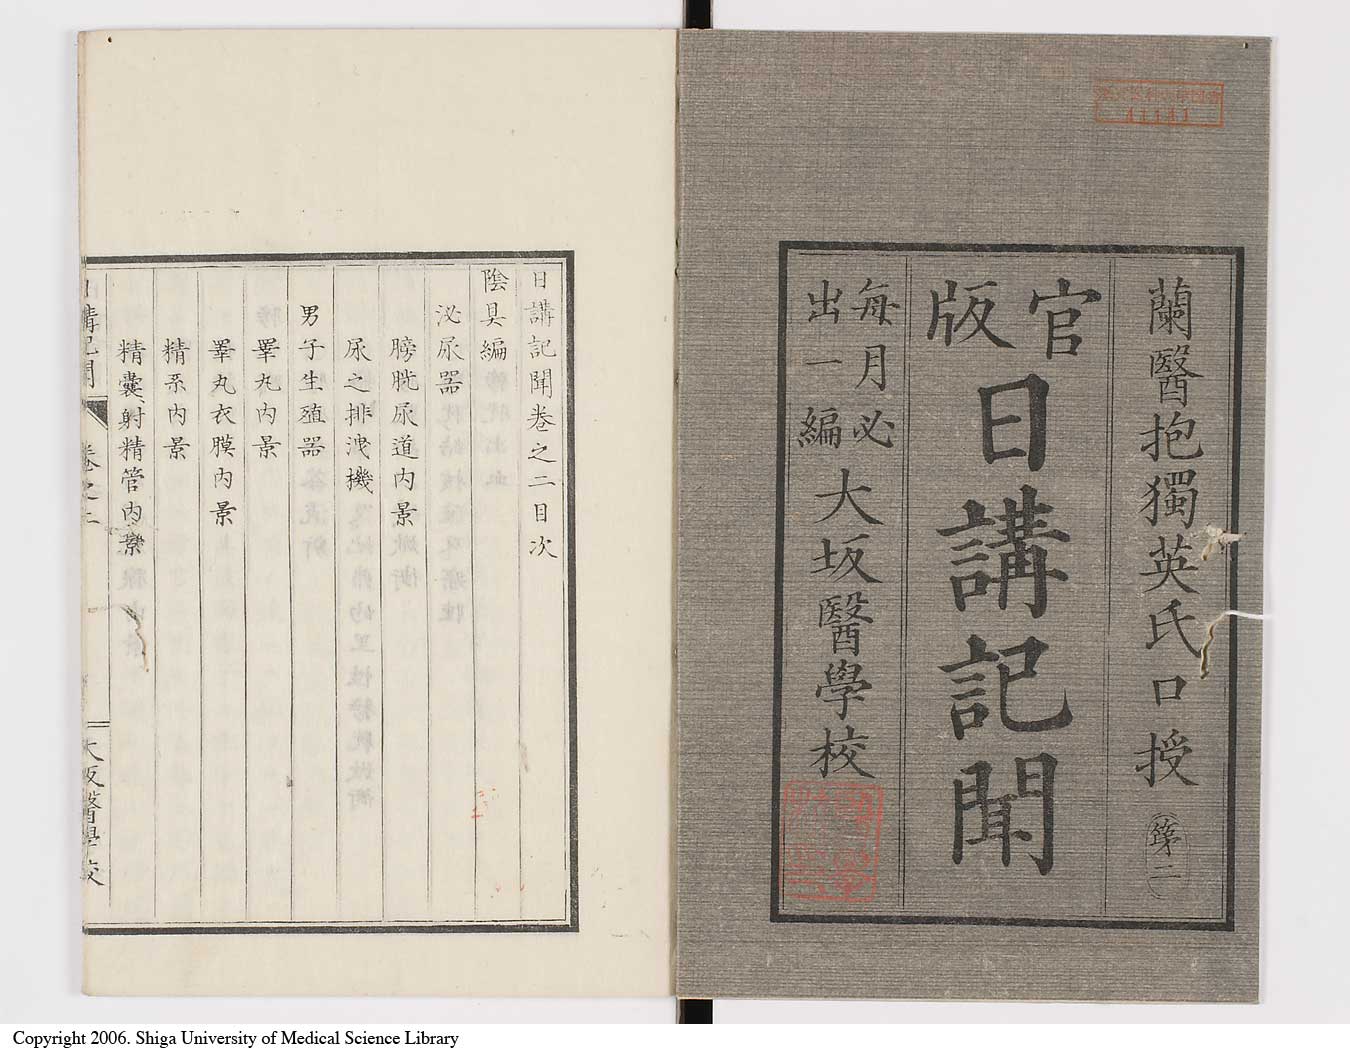 蘭醫抱獨英氏口授 第二
官版
日講記聞
每月必
出一編
大坂醫學校
11141
日講記聞卷之二目次
陰具編
泌尿器
膀胱尿道內景
尿之排洩機
男子生殖器
睪丸內景
睪丸衣膜內景
精系內景
精囊射精管內景
日講記聞 卷之二 大坂醫學校
Copyright 2006. Shiga University of Medical Science Library